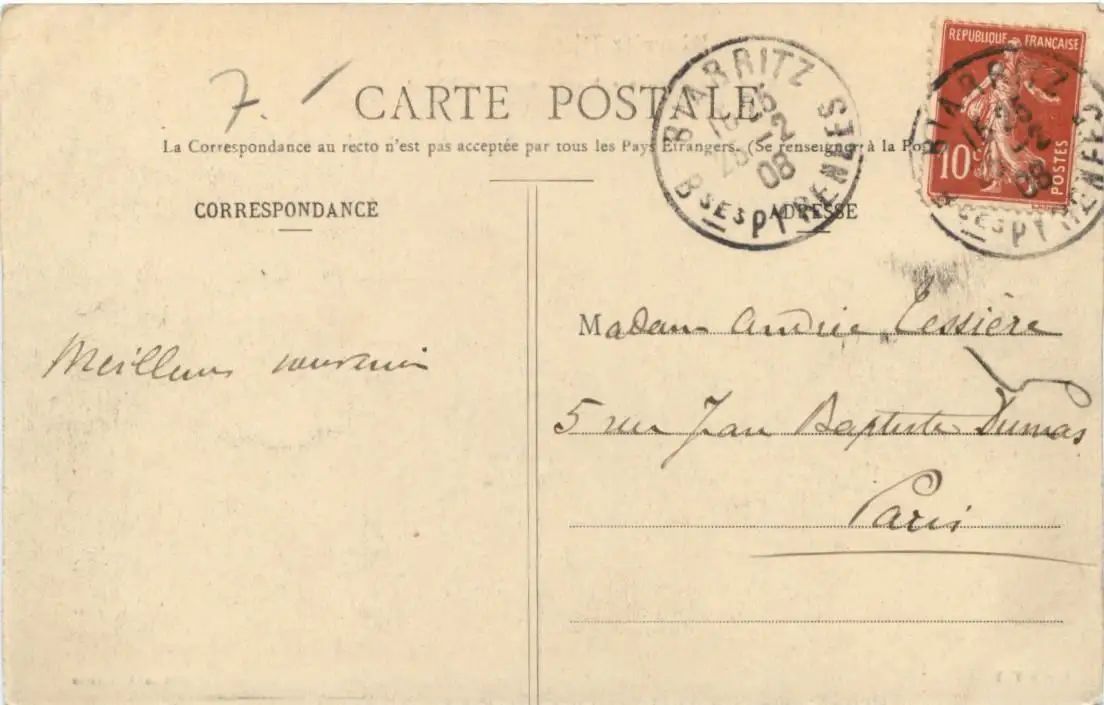 7.
CARTE POSTALE
La Correspondance au recto n'est pas acceptée par tous les Pays Étrangers. (Se renseigner à la Po
CORRESPONDANCE
ADRESSE
BIARRITZ
16 25
2
08
BSES PYRENEES
REPUBLIQUE FRANÇAISE
10c
POSTES
BIARRITZ
15 25
2
08
BSES PYRENEES
Meilleurs souvenirs
Madame André Tessière
5 rue Jean Baptiste Dumas
Paris